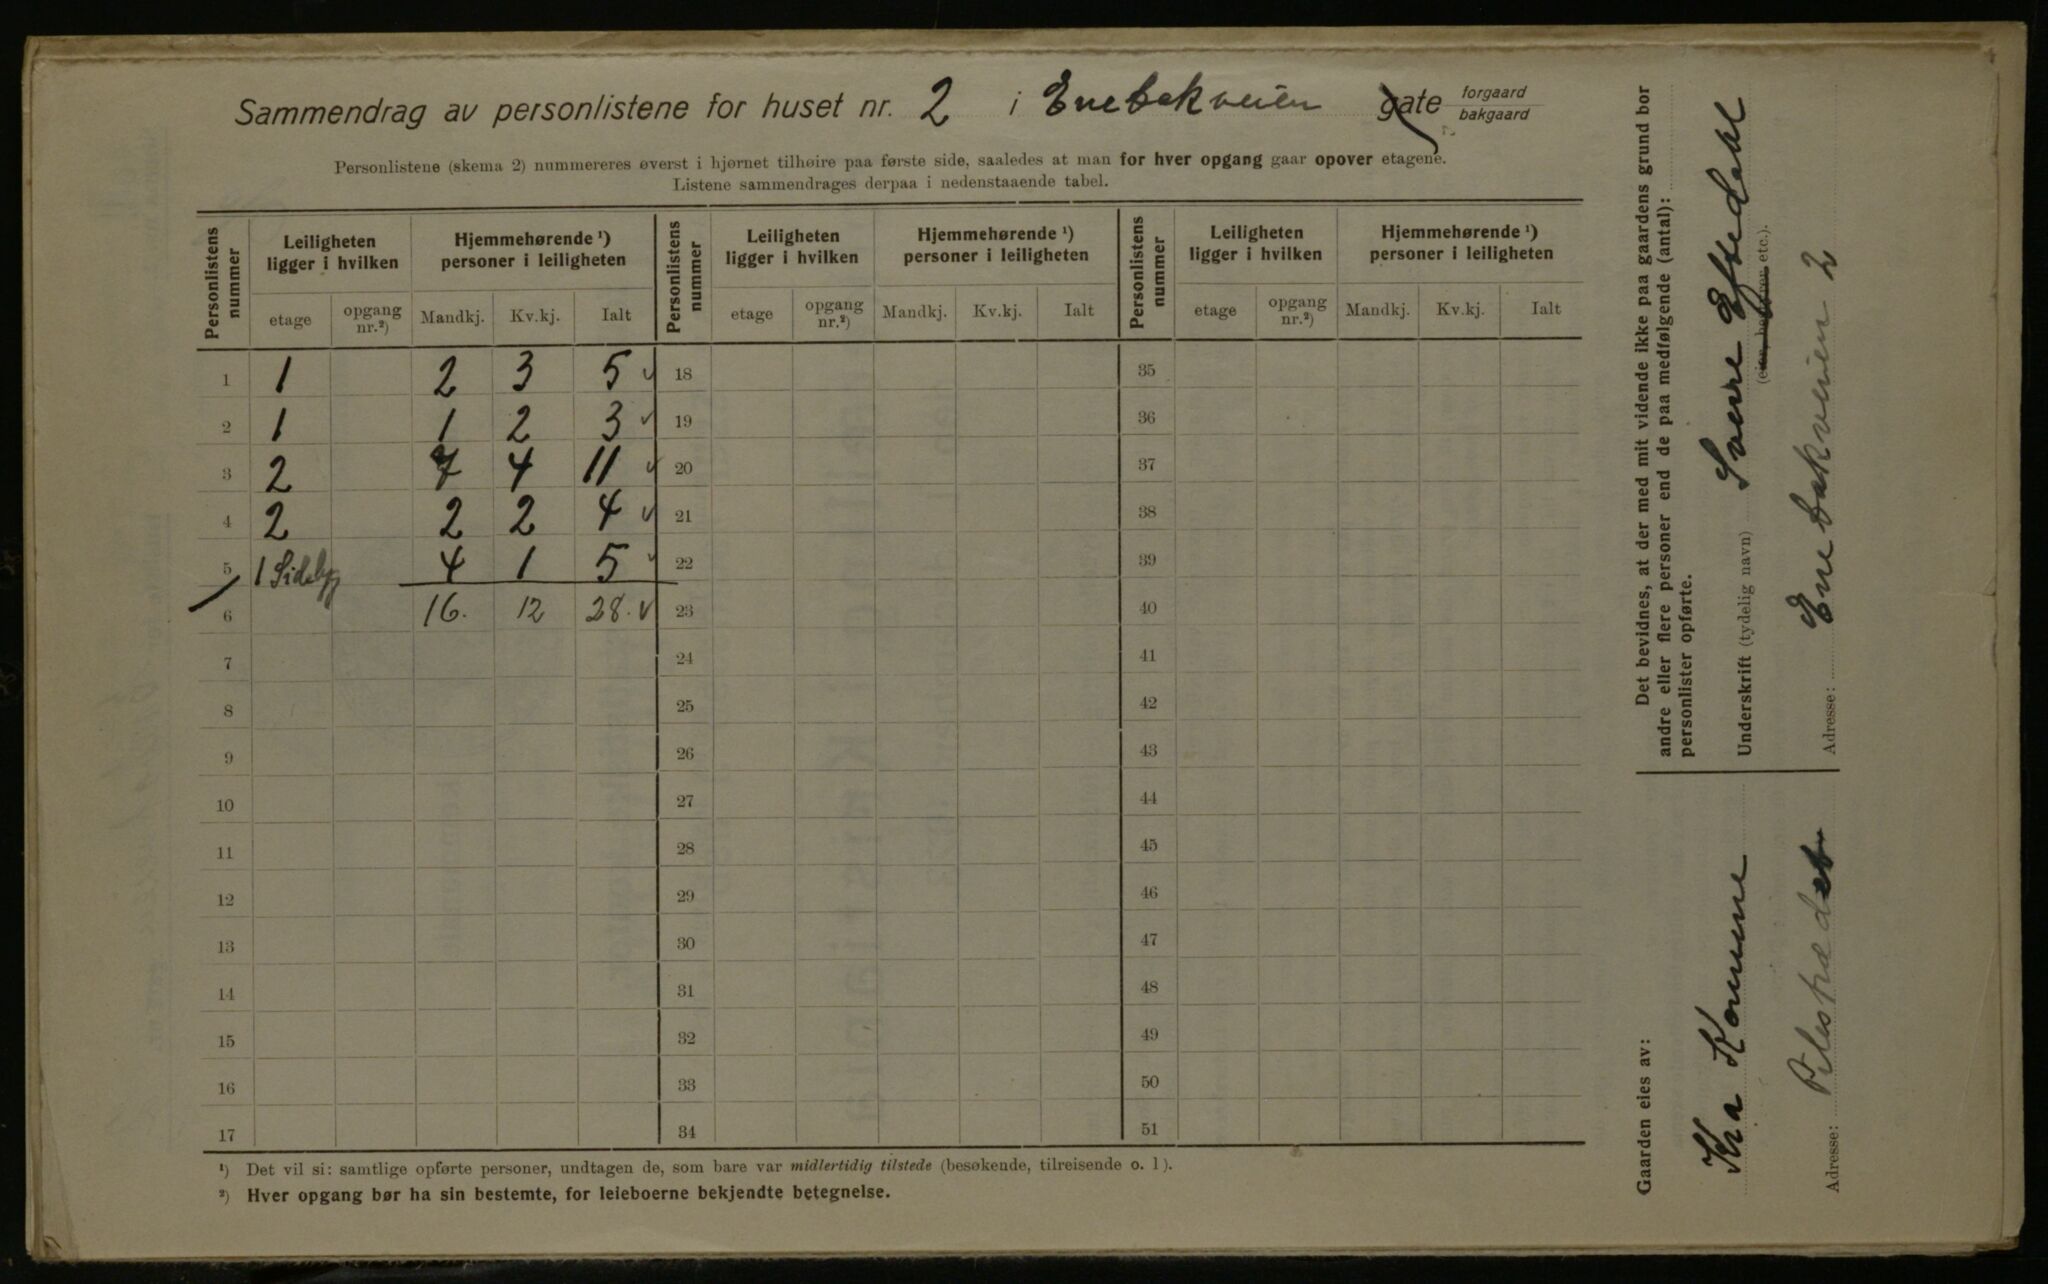 Sammendrag av personlistene for huset nr. 2 i Enebakveien gate forgaard bakgaard
Personlistene (skema 2) nummereres øverst i hjørnet tilhøire paa første side, saaledes at man for hver opgang gaar opover etagene.
Listene sammendrages derpaa i nedenstaaende tabel.
Personlistens nummer | Leiligheten ligger i hvilken | Hjemmehørende ¹) personer i leiligheten | Personlistens nummer | Leiligheten ligger i hvilken | Hjemmehørende ¹) personer i leiligheten | Personlistens nummer | Leiligheten ligger i hvilken | Hjemmehørende ¹) personer i leiligheten
etage | opgang nr.²) | Mandkj. | Kv.kj. | Ialt | etage | opgang nr.²) | Mandkj. | Kv.kj. | Ialt | etage | opgang nr.²) | Mandkj. | Kv.kj. | Ialt
1 1 2 3 5 ✓ 18 35
2 1 1 2 3 ✓ 19 36
3 2 7 4 11 ✓ 20 37
4 2 2 2 4 ✓ 21 38
5 1 Sidebyg 4 1 5 ✓ 22 39
6 16. 12 28. ✓ 23 40
7 24 41
8 25 42
9 26 43
10 27 44
11 28 45
12 29 46
13 30 47
14 31 48
15 32 49
16 33 50
17 34 51
¹) Det vil si: samtlige opførte personer, undtagen de, som bare var midlertidig tilstede (besøkende, tilreisende o. l.).
²) Hver opgang bør ha sin bestemte, for leieboerne bekjendte betegnelse.
Det bevidnes, at der med mit vidende ikke paa gaardens grund bor
andre eller flere personer end de paa medfølgende (antal):
personlister opførte.
Underskrift (tydelig navn) Sverre Eftedahl
(eier, bestyrer etc.).
Adresse: Enebakveien 2
Gaarden eies av:
Kra Komune
Adresse: Pilestrædet